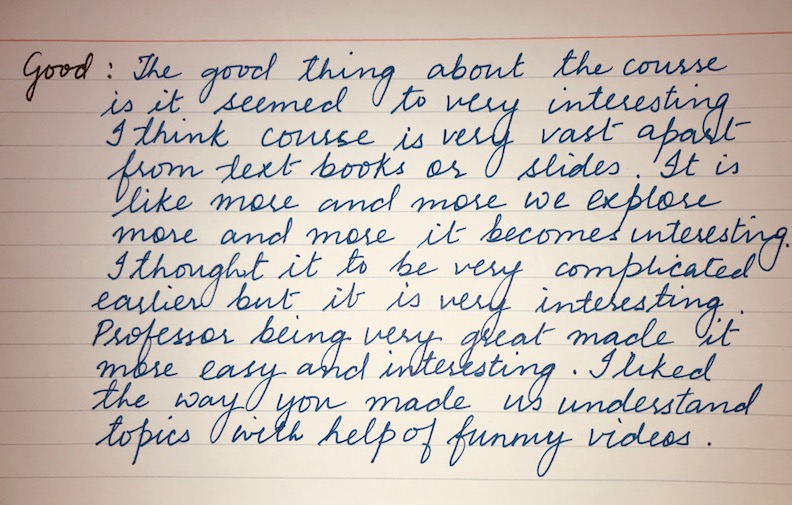 Good : The good thing about the course
is it seemed to very interesting
I think course is very vast apart
from text books or slides. It is
like more and more we explore
more and more it becomes interesting.
I thought it to be very complicated
earlier but it is very interesting.
Professor being very great made it
more easy and interesting. I liked
the way you made us understand
topics with help of funny videos.